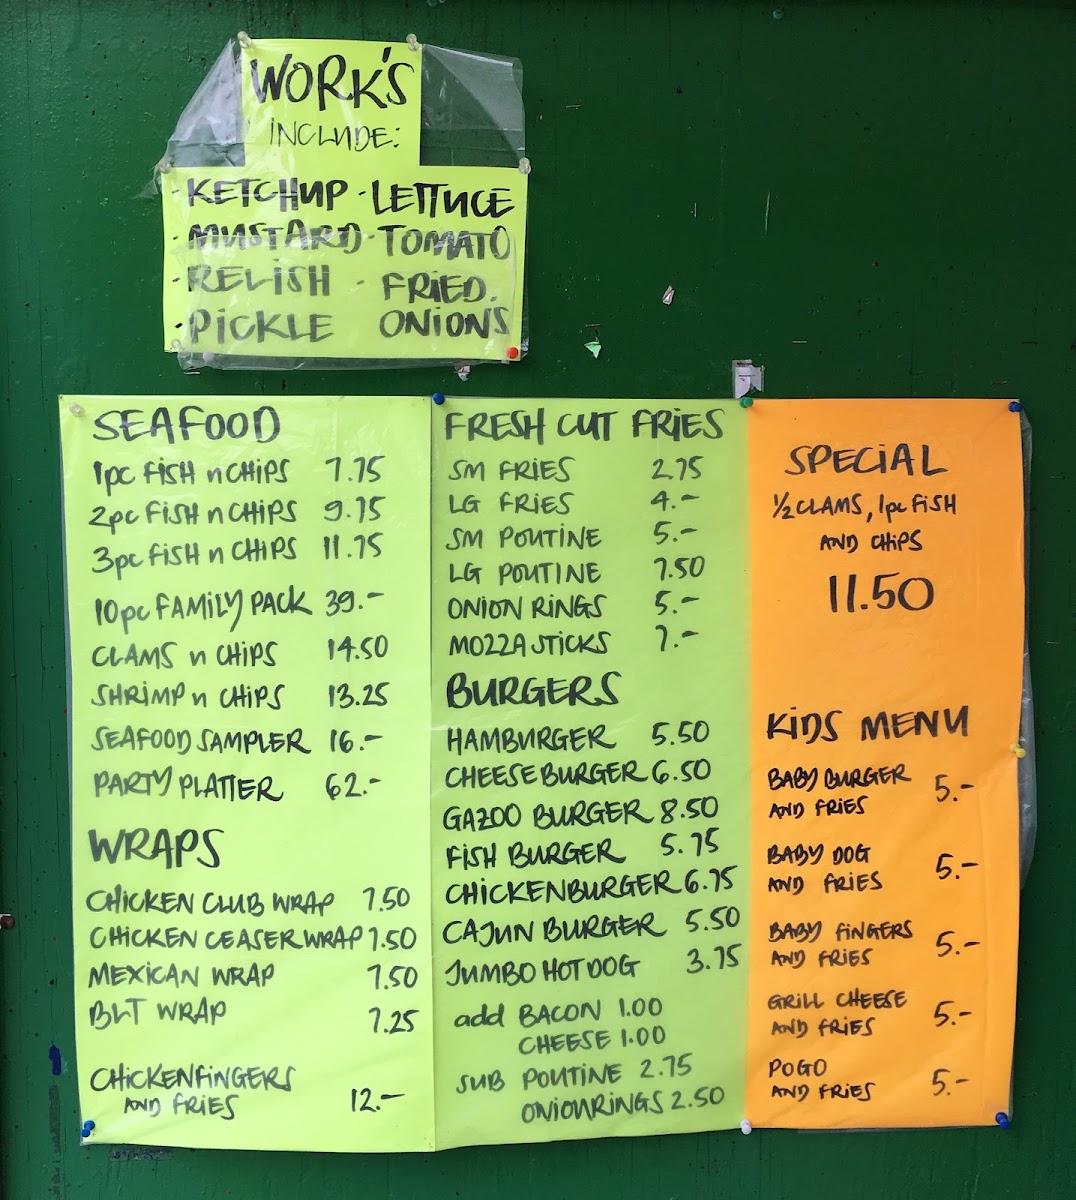 WORK'S
INCLUDE:
· KETCHUP · LETTUCE
· MUSTARD · TOMATO
· RELISH · FRIED.
· PICKLE ONIONS
SEAFOOD
1pc FISH n CHIPS 7.75
2pc FISH n CHIPS 9.75
3pc FISH n CHIPS 11.75
10pc FAMILY PACK 39.-
CLAMS n CHIPS 14.50
SHRIMP n CHIPS 13.25
SEAFOOD SAMPLER 16.-
PARTY PLATTER 62.-
WRAPS
CHICKEN CLUB WRAP 7.50
CHICKEN CEASER WRAP 7.50
MEXICAN WRAP 7.50
BLT WRAP 7.25
CHICKENFINGERS
AND FRIES 12.-
FRESH CUT FRIES
SM FRIES 2.75
LG FRIES 4.-
SM POUTINE 5.-
LG POUTINE 7.50
ONION RINGS 5.-
MOZZA STICKS 7.-
BURGERS
HAMBURGER 5.50
CHEESEBURGER 6.50
GAZOO BURGER 8.50
FISH BURGER 5.75
CHICKENBURGER 6.75
CAJUN BURGER 5.50
JUMBO HOT DOG 3.75
add BACON 1.00
CHEESE 1.00
SUB POUTINE 2.75
ONIONRINGS 2.50
SPECIAL
1/2 CLAMS, 1pc FISH
AND CHIPS
11.50
KIDS MENU
BABY BURGER
AND FRIES 5.-
BABY DOG
AND FRIES 5.-
BABY FINGERS
AND FRIES 5.-
GRILL CHEESE
AND FRIES 5.-
POGO
AND FRIES 5.-